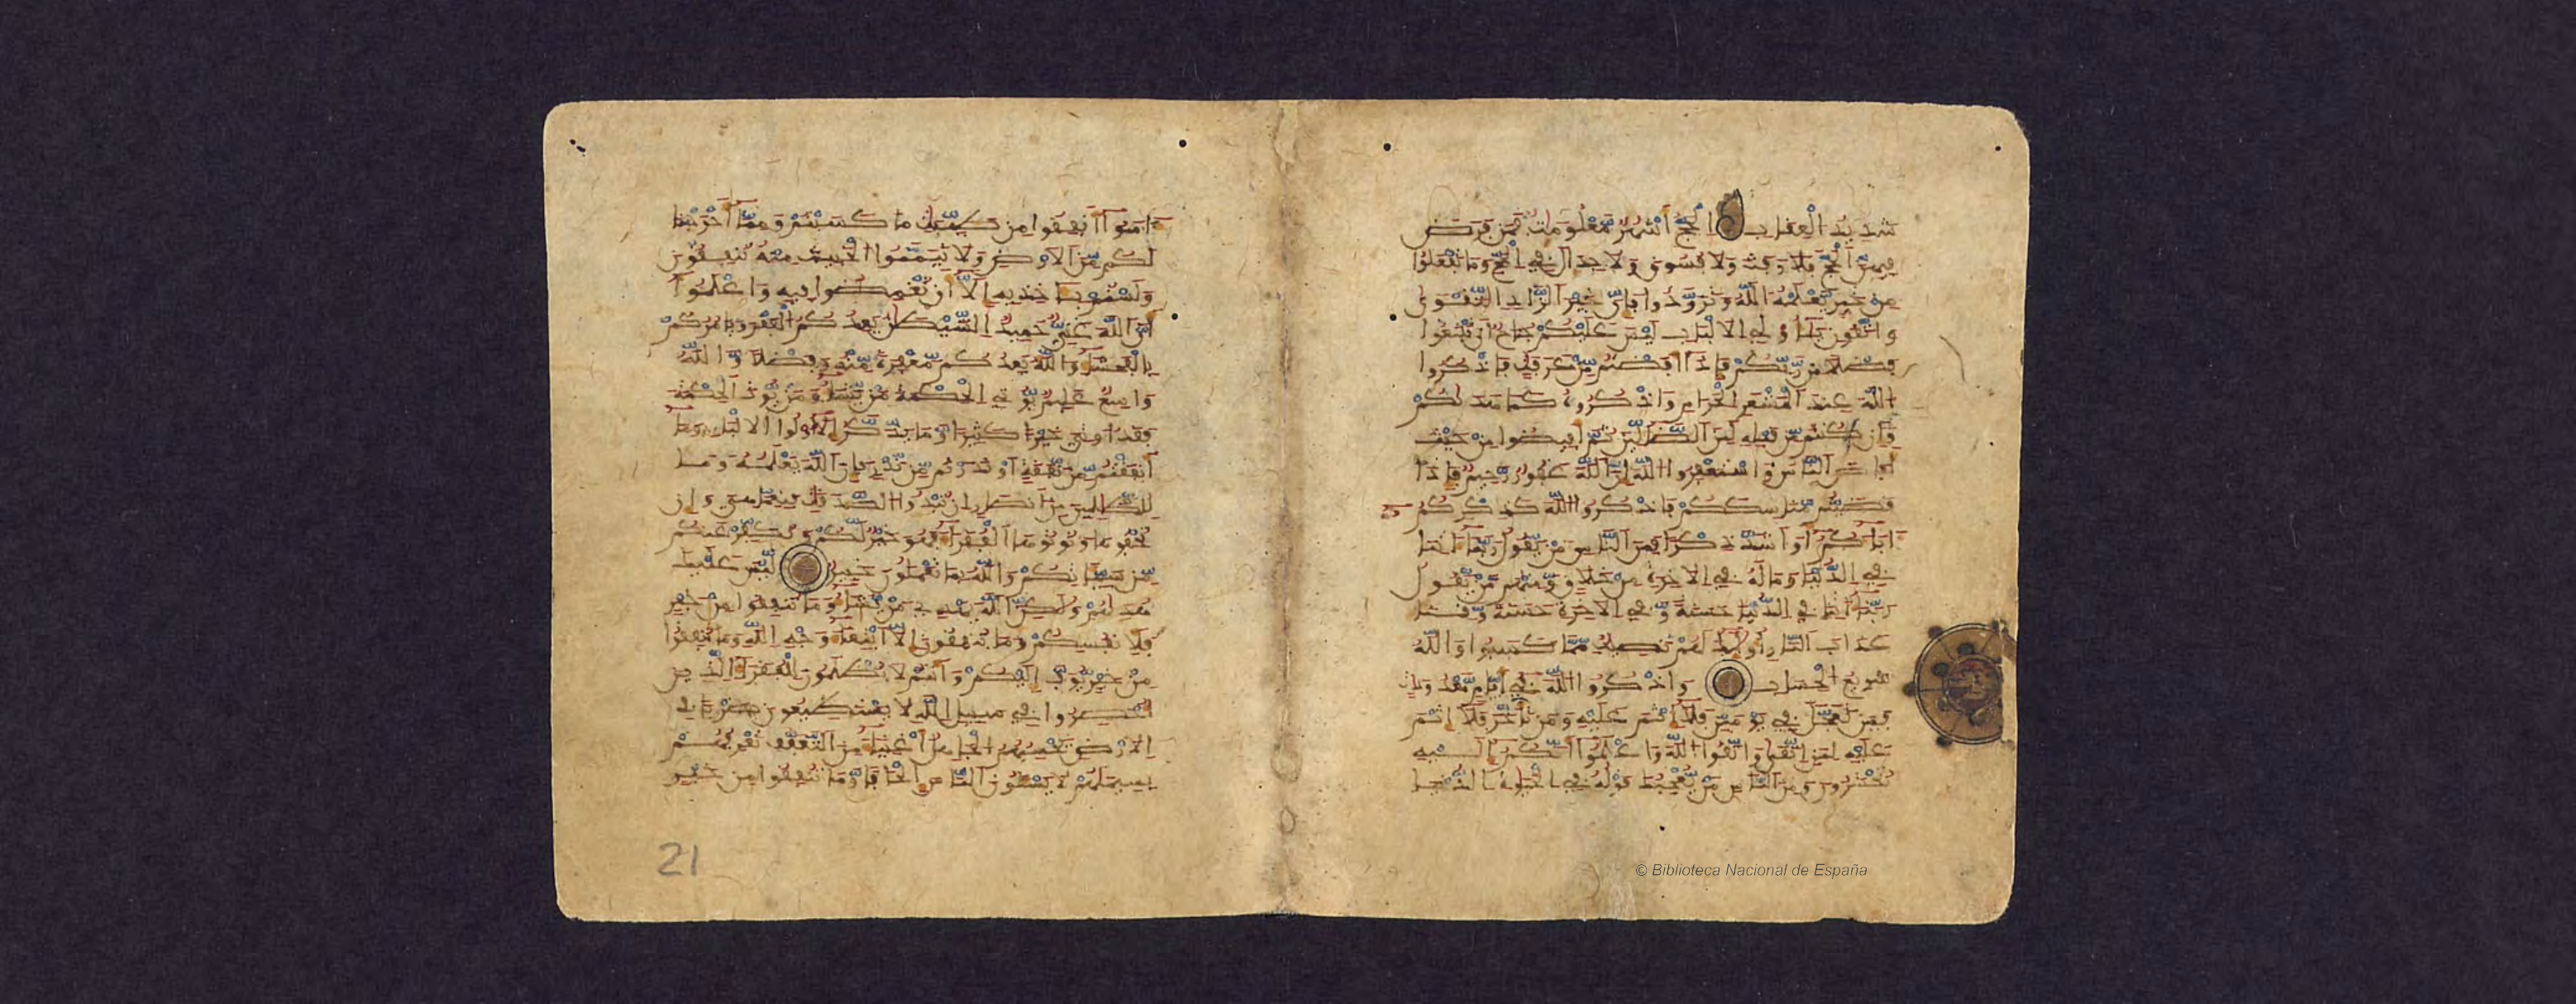 شديد العقاب الحج أشهر معلومت فمن فرض
فيهن الحج فلا رفث ولا فسوق ولا جدال في الحج وما تفعلوا
من خير يعلمه الله وتزودوا فإن خير الزاد التقوى
واتقون يأولي الالبب ليس عليكم جناح أن تبتغوا
فضلا من ربكم فإذا أفضتم من عرفت فاذكروا
الله عند المشعر الحرام واذكروه كما هديكم
وإن كنتم من قبله لمن الضالين ثم أفيضوا من حيث
أفاض الناس واستغفروا الله إن الله غفور رحيم فإذا
قضيتم منسككم فاذكروا الله كذكركم
اباءكم أو أشد ذكرا فمن الناس من يقول ربنا اتنا
في الدنيا وما له في الاخرة من خلق ومنهم من يقول
ربنا اتنا في الدنيا حسنة وفي الاخرة حسنة وقنا
عذاب النار أوليك لهم نصيب مما كسبوا والله
سريع الحساب واذكروا الله في أيام معدودت
فمن تعجل في يومين فلا إثم عليه ومن تأخر فلا إثم
عليه لمن اتقى واتقوا الله واعلموا أنكم إليه
تحشرون ومن الناس من يعجبك قوله في الحيوة الدنيا
ءامنوا أنفقوا من طيبت ما كسبتم ومما أخرجنا
لكم من الارض ولا تيمموا الخبيث منه تنفقون
ولستم باخذيه إلا أن تغمضوا فيه واعلموا
أن الله غني حميد الشيطن يعدكم الفقر ويامركم
بالفحشاء والله يعدكم مغفرة منه وفضلا والله
واسع عليم يوتي الحكمة من يشاء ومن يوت الحكمة
فقد أوتي خيرا كثيرا وما يذكر إلا أولوا الالبب وما
أنفقتم من نفقة أو نذرتم من نذر فإن الله يعلمه وما
للظلمين من أنصار إن تبدوا الصدقت فنعما هي وإن
تخفوها وتوتوها الفقراء فهو خير لكم ونكفر عنكم
من سياتكم والله بما تعملون خبير ليس عليك
هديهم ولكن الله يهدي من يشاء وما تنفقوا من خير
فلانفسكم وما تنفقون إلا ابتغاء وجه الله وما تنفقوا
من خير يوف إليكم وأنتم لا تظلمون للفقراء الذين
أحصروا في سبيل الله لا يستطيعون ضربا في
الارض يحسبهم الجاهل أغنياء من التعفف تعرفهم
بسيمهم لا يسئلون الناس إلحافا وما تنفقوا من خير
21
© Biblioteca Nacional de España